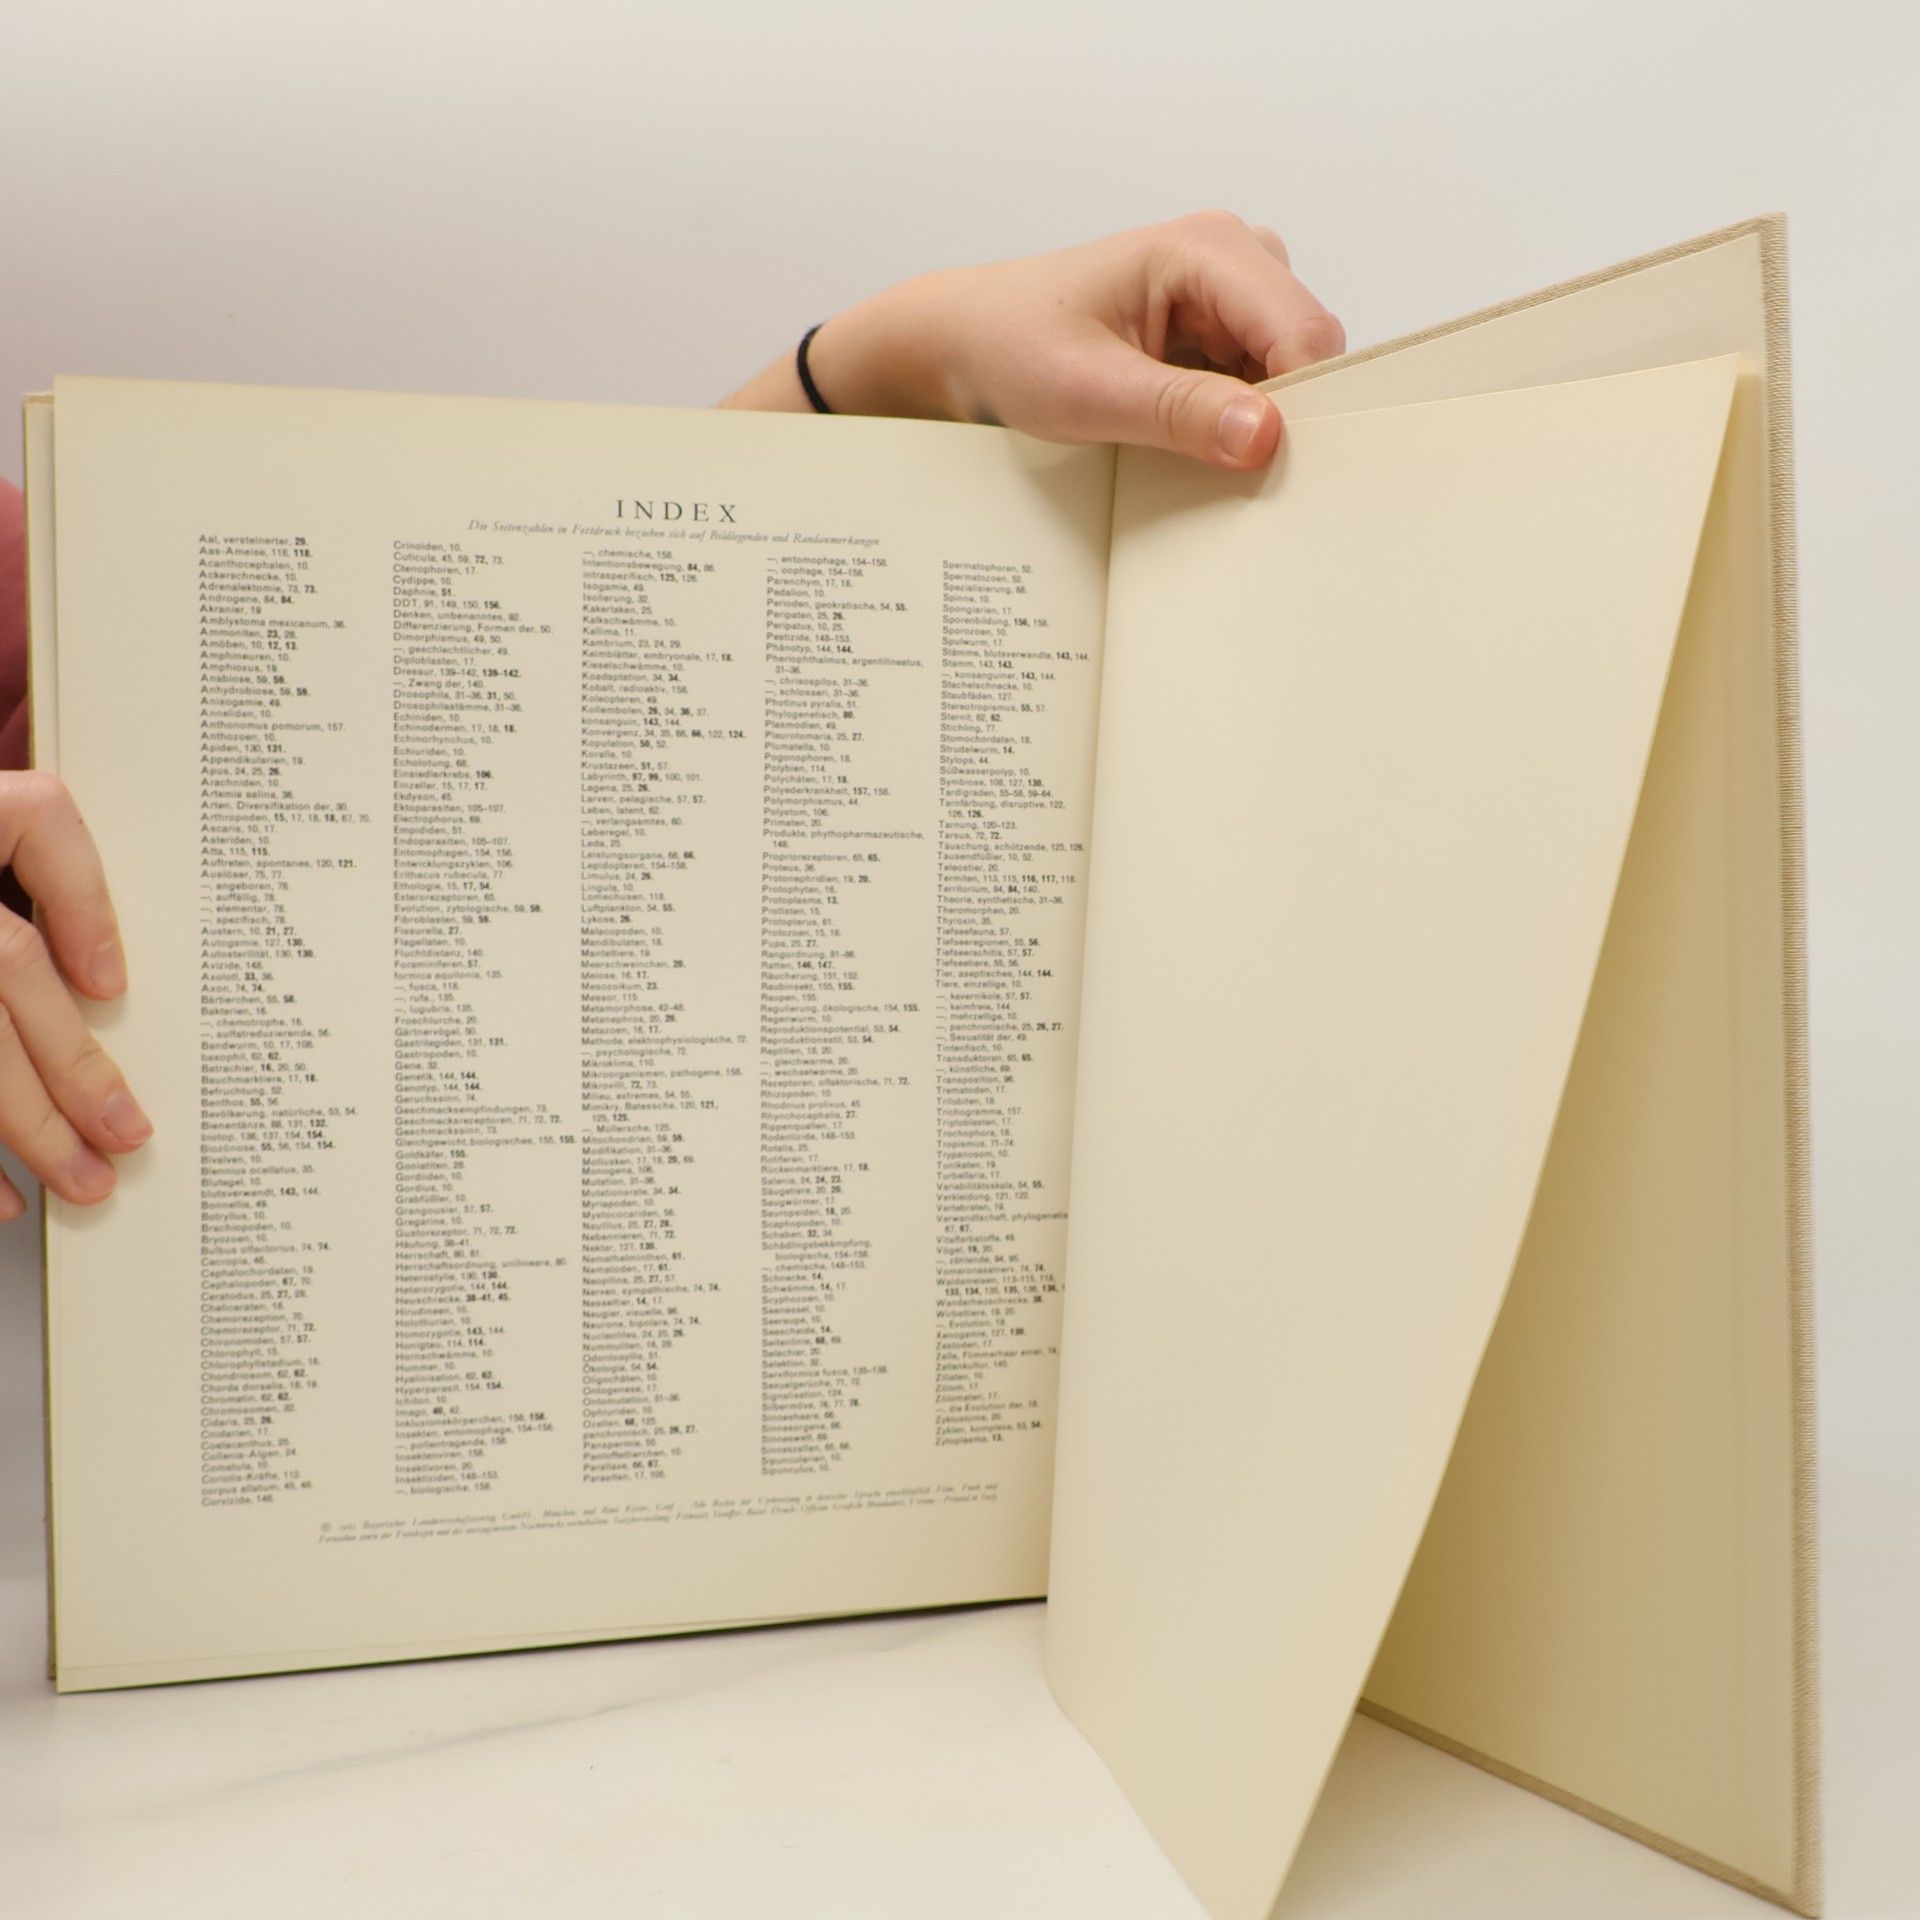 INDEX
Die Seitenzahlen in Fettdruck beziehen sich auf Bildlegenden und Randanmerkungen
Aal, versteinerter, 29.
Aas-Ameise, 118, 118.
Acanthocephalen, 10.
Ackerschnecke, 10.
Adrenalektomie, 73, 73.
Androgene, 84, 84.
Akranier, 19
Amblystoma mexicanum, 36.
Ammoniten, 23, 28.
Amöben, 10, 12, 13.
Amphineuren, 10.
Amphioxus, 19.
Anabiose, 59, 59.
Anhydrobiose, 59, 59.
Anisogamie, 49.
Anneliden, 10.
Anthonomus pomorum, 157.
Anthozoen, 10.
Apiden, 130, 131.
Appendikularien, 19.
Apus, 24, 25, 26.
Arachniden, 10.
Artemia salina, 36.
Arten, Diversifikation der, 30.
Arthropoden, 15, 17, 18, 18, 67, 70.
Ascaris, 10, 17.
Asteriden, 10.
Atta, 115, 115.
Auftreten, spontanes, 120, 121.
Auslöser, 75, 77.
—, angeboren, 78.
—, auffällig, 78.
—, elementar, 78.
—, spezifisch, 78.
Austern, 10, 21, 27.
Autogamie, 127, 130.
Autosterilität, 130, 130.
Avizide, 148.
Axolotl, 33, 36.
Axon, 74, 74.
Bärtierchen, 55, 58.
Bakterien, 16.
—, chemotrophe, 16.
—, sulfatreduzierende, 56.
Bandwurm, 10, 17, 108.
basophil, 62, 62.
Batrachier, 16, 20, 50.
Bauchmarktiere, 17, 18.
Befruchtung, 52.
Benthos, 55, 56.
Bevölkerung, natürliche, 53, 54.
Bienentänze, 88, 131, 132.
biotop, 136, 137, 154, 154.
Biozönose, 55, 56, 154, 154.
Bivalven, 10.
Blennius ocellatus, 35.
Blutegel, 10.
blutsverwandt, 143, 144.
Bonnellia, 49.
Botryllus, 10.
Brachiopoden, 10.
Bryozoen, 10.
Bulbus olfactorius, 74, 74.
Cecropia, 46.
Cephalochordaten, 19.
Cephalopoden, 67, 70.
Ceratodus, 25, 27, 28.
Cheliceraten, 18.
Chemorezeption, 70.
Chemorezeptor, 71, 72.
Chironomiden, 57, 57.
Chlorophyll, 15.
Chlorophyllstadium, 16.
Chondriosom, 62, 62.
Chorda dorsalis, 18, 19.
Chromatin, 62, 62.
Chromosomen, 32.
Cidaris, 25, 26.
Cnidarien, 17.
Coelacanthus, 25.
Collenia-Algen, 24.
Comatula, 10.
Coriolis-Kräfte, 112.
corpus allatum, 45, 46.
Corvizide, 148.
Crinoiden, 10.
Cuticula, 45, 59, 72, 73.
Ctenophoren, 17.
Cydippe, 10.
Daphnie, 51.
DDT, 91, 149, 150, 156.
Denken, unbenanntes, 92.
Differenzierung, Formen der, 50.
Dimorphismus, 49, 50.
—, geschlechtlicher, 49.
Diploblasten, 17.
Dressur, 139–142, 139–142.
—, Zwang der, 140.
Drosophila, 31–36, 31, 50.
Drosophilastämme, 31–36.
Echiniden, 10.
Echinodermen, 17, 18, 18.
Echinorhynchus, 10.
Echiuriden, 10.
Echolotung, 68.
Einsiedlerkrebs, 106.
Einzeller, 15, 17, 17.
Ekdyson, 45.
Ektoparasiten, 105–107.
Electrophorus, 69.
Empididen, 51.
Endoparasiten, 105–107.
Entomophagen, 154, 156.
Entwicklungszyklen, 106.
Erithacus rubecula, 77.
Ethologie, 15, 17, 54.
Exterorezeptoren, 65.
Evolution, zytologische, 59, 59.
Fibroblasten, 59, 59.
Fissurella, 27.
Flagellaten, 10.
Fluchtdistanz, 140.
Foraminiferen, 57.
formica aquilonia, 135.
—, fusca, 118.
—, rufa, 135.
—, lugubris, 135.
Froschlurche, 20.
Gärtnervögel, 50.
Gastrilegiden, 131, 131.
Gastropoden, 10.
Gene, 32.
Genetik, 144, 144.
Genotyp, 144, 144.
Geruchssinn, 74.
Geschmacksempfindungen, 73.
Geschmacksrezeptoren, 71, 72, 72.
Geschmackssinn, 73.
Gleichgewicht, biologisches, 155, 155.
Goldkäfer, 155.
Goniatiten, 28.
Gordiiden, 10.
Gordius, 10.
Grabfüßler, 10.
Grangousier, 57, 57.
Gregarine, 10.
Gustorezeptor, 71, 72, 72.
Häutung, 38–41.
Herrschaft, 80, 81.
Herrschaftsordnung, unilineare, 80.
Heterostylie, 130, 130.
Heterozygotie, 144, 144.
Heuschrecke, 38–41, 45.
Hirudineen, 10.
Holothurien, 10.
Homozygotie, 143, 144.
Honigtau, 114, 114.
Hornschwämme, 10.
Hummer, 10.
Hyalinisation, 62, 62.
Hyperparasit, 154, 154.
Ichiton, 10.
Imago, 40, 42.
Inklusionskörperchen, 158, 158.
Insekten, entomophage, 154–158.
—, pollentragende, 158.
Insektenviren, 158.
Insektivoren, 20.
Insektiziden, 148–153.
—, biologische, 158.
—, chemische, 158.
Intentionsbewegung, 84, 86.
intraspezifisch, 125, 126.
Isogamie, 49.
Isolierung, 32.
Kakerlaken, 25.
Kalkschwämme, 10.
Kallima, 11.
Kambrium, 23, 24, 29.
Keimblätter, embryonale, 17, 18.
Kieselschwämme, 10.
Koadaptation, 34, 34.
Kobalt, radioaktiv, 158.
Koleopteren, 49.
Kollembolen, 26, 34, 36, 37.
konsanguin, 143, 144.
Konvergenz, 34, 35, 66, 66, 122, 124.
Kopulation, 50, 52.
Koralle, 10.
Krustazeen, 51, 57.
Labyrinth, 97, 99, 100, 101.
Lagena, 25, 26.
Larven, pelagische, 57, 57.
Leben, latent, 62.
—, verlangsamtes, 60.
Leberegel, 10.
Leda, 25.
Leistungsorgane, 66, 66.
Lepidopteren, 154–158.
Limulus, 24, 26.
Lingula, 10.
Lomechusen, 118.
Luftplankton, 54, 55.
Lykose, 26.
Malacopoden, 10.
Mandibulaten, 18.
Manteltiere, 19.
Meerschweinchen, 20.
Meiose, 16, 17.
Mesozoikum, 23.
Messor, 115.
Metamorphose, 42–48.
Metanephros, 20, 20.
Metazoen, 16, 17.
Methode, elektrophysiologische, 72.
—, psychologische, 72.
Mikroklima, 110.
Mikroorganismen, pathogene, 158.
Mikrovilli, 72, 73.
Milieu, extremes, 54, 55.
Mimikry, Batessche, 120, 121,
125, 125.
—, Müllersche, 125.
Mitochondrien, 59, 59.
Modifikation, 31–36.
Mollusken, 17, 18, 20, 69.
Monogena, 106.
Mutation, 31–36.
Mutationsrate, 34, 34.
Myriapoden, 10.
Mystococariden, 56.
Nautilus, 25, 27, 28.
Nebennieren, 71, 72.
Nektar, 127, 130.
Nemathelminthen, 61.
Nematoden, 17, 61.
Neopilina, 25, 27, 57.
Nerven, sympathische, 74, 74.
Nesseltier, 14, 17.
Neugier, visuelle, 98.
Neurone, bipolare, 74, 74.
Nucleolites, 24, 25, 26.
Nummuliten, 16, 28.
Odontosyllis, 51.
Ökologie, 54, 54.
Oligochäten, 10.
Ontogenese, 17.
Ontomutation, 31–36.
Ophiuriden, 10.
Ozellen, 68, 125.
panchronisch, 25, 26, 27.
Panspermie, 55.
Pantoffeltierchen, 10.
Parallaxe, 66, 67.
Parasiten, 17, 105.
—, entomophage, 154–158.
—, oophage, 154–158.
Parenchym, 17, 18.
Pedalion, 10.
Perioden, geokratische, 54, 55.
Peripaten, 25, 26.
Peripatus, 10, 25.
Pestizide, 148–153.
Phänotyp, 144, 144.
Pheriophthalmus, argentilineatus,
31–36.
—, chrisospilos, 31–36.
—, schlosseri, 31–36.
Photinus pyralis, 51.
Phylogenetisch, 80.
Plasmodien, 49.
Pleurotomaria, 25, 27.
Plumatella, 10.
Pogonophoren, 18.
Polybien, 114.
Polychäten, 17, 18.
Polyederkrankheit, 157, 158.
Polymorphismus, 44.
Polystom, 106.
Primaten, 20.
Produkte, phythopharmazeutische,
148.
Propriorezeptoren, 65, 65.
Proteus, 36.
Protonephridien, 19, 20.
Protophyten, 16.
Protoplasma, 13.
Protisten, 15.
Protopterus, 61.
Protozoen, 15, 18.
Pupa, 25, 27.
Rangordnung, 81–86.
Ratten, 146, 147.
Räucherung, 151, 152.
Raubinsekt, 155, 155.
Raupen, 155.
Regulierung, ökologische, 154, 155.
Regenwurm, 10.
Reproduktionspotential, 53, 54.
Reproduktionsstil, 53, 54.
Reptilien, 18, 20.
—, gleichwarme, 20.
—, wechselwarme, 20.
Rezeptoren, olfaktorische, 71, 72.
Rhizopoden, 10.
Rhodnius prolixus, 45.
Rhynchocephalia, 27.
Rippenquallen, 17.
Rodentizide, 148–153.
Rotalia, 25.
Rotiferen, 17.
Rückenmarktiere, 17, 18.
Salenia, 24, 24, 23.
Säugetiere, 20, 29.
Saugwürmer, 17.
Sauropsiden, 18, 20.
Scaphopoden, 10.
Schaben, 32, 34.
Schädlingsbekämpfung,
biologische, 154–158.
—, chemische, 148–153.
Schnecke, 14.
Schwämme, 14, 17.
Scyphozoen, 10.
Seenessel, 10.
Seeraupe, 10.
Seescheide, 14.
Seitenlinie, 68, 69.
Selachier, 20.
Selektion, 32.
Serviformica fusca, 135–138.
Sexualgerüche, 71, 72.
Signalisation, 124.
Silbermöve, 76, 77, 78.
Sinneshaare, 66.
Sinnesorgane, 66.
Sinneswelt, 69.
Sinneszellen, 65, 66.
Sipuncularien, 10.
Sipunculus, 10.
Spermatophoren, 52.
Spermatozoen, 52.
Spezialisierung, 68.
Spinne, 10.
Spongiarien, 17.
Sporenbildung, 156, 158.
Sporozoen, 10.
Spulwurm, 17.
Stämme, blutsverwandte, 143, 144.
Stamm, 143, 143.
—, konsanguiner, 143, 144.
Stachelschnecke, 10.
Staubfäden, 127.
Stereotropismus, 55, 57.
Sternit, 62, 62.
Stichling, 77.
Stomochordaten, 18.
Strudelwurm, 14.
Stylops, 44.
Süßwasserpolyp, 10.
Symbiose, 108, 127, 130.
Tardigraden, 55–58, 59–64.
Tarnfärbung, disruptive, 122,
126, 126.
Tarnung, 120–123.
Tarsus, 72, 72.
Täuschung, schützende, 125, 126.
Tausendfüßler, 10, 52.
Teleostier, 20.
Termiten, 113, 115, 116, 117, 118.
Territorium, 84, 84, 140.
Theorie, synthetische, 31–36.
Theromorphen, 20.
Thyroxin, 35.
Tiefseefauna, 57.
Tiefseeregionen, 55, 56.
Tiefseerachitis, 57, 57.
Tiefseetiere, 55, 56.
Tier, aseptisches, 144, 144.
Tiere, einzellige, 10.
—, kavernikole, 57, 57.
—, keimfreie, 144.
—, mehrzellige, 10.
—, panchronische, 25, 26, 27.
—, Sexualität der, 49.
Tintenfisch, 10.
Transduktoren, 65, 65.
—, künstliche, 69.
Transposition, 96.
Trematoden, 17.
Trilobiten, 18.
Trichogramma, 157.
Triploblasten, 17.
Trochophora, 18.
Tropismus, 71–74.
Trypanosom, 10.
Tunikaten, 19.
Turbellaria, 17.
Variabilitätsskala, 54, 55.
Verkleidung, 121, 122.
Vertebraten, 19.
Verwandtschaft, phylogenetis
67, 67.
Vitalfarbstoffe, 49.
Vögel, 19, 20.
—, zählende, 94, 95.
Vomeronasalnerv, 74, 74.
Waldameisen, 113–115, 118,
133, 134, 135, 135, 136, 138,
Wanderheuschrecke, 38.
Wirbeltiere, 19, 20.
—, Evolution, 18.
Xenogamie, 127, 130.
Zestoden, 17.
Zelle, Flimmerhaar einer, 74,
Zellenkultur, 145.
Ziliaten, 10.
Zölom, 17.
Zölomaten, 17.
—, die Evolution der, 18.
Zyklostome, 20.
Zyklen, komplexe, 53, 54.
Zytoplasma, 13.
© 1965 Bayerischer Landwirtschaftsverlag GmbH., München, und René Kister, Genf - Alle Rechte der Verbreitung in deutscher Sprache einschließlich Film, Funk und
Fernsehen sowie der Fotokopie und des auszugsweisen Nachdrucks vorbehalten. Satzherstellung: Filmsatz Stauffer, Basel. Druck: Officine Grafiche Mondadori, Verona - Printed in Italy